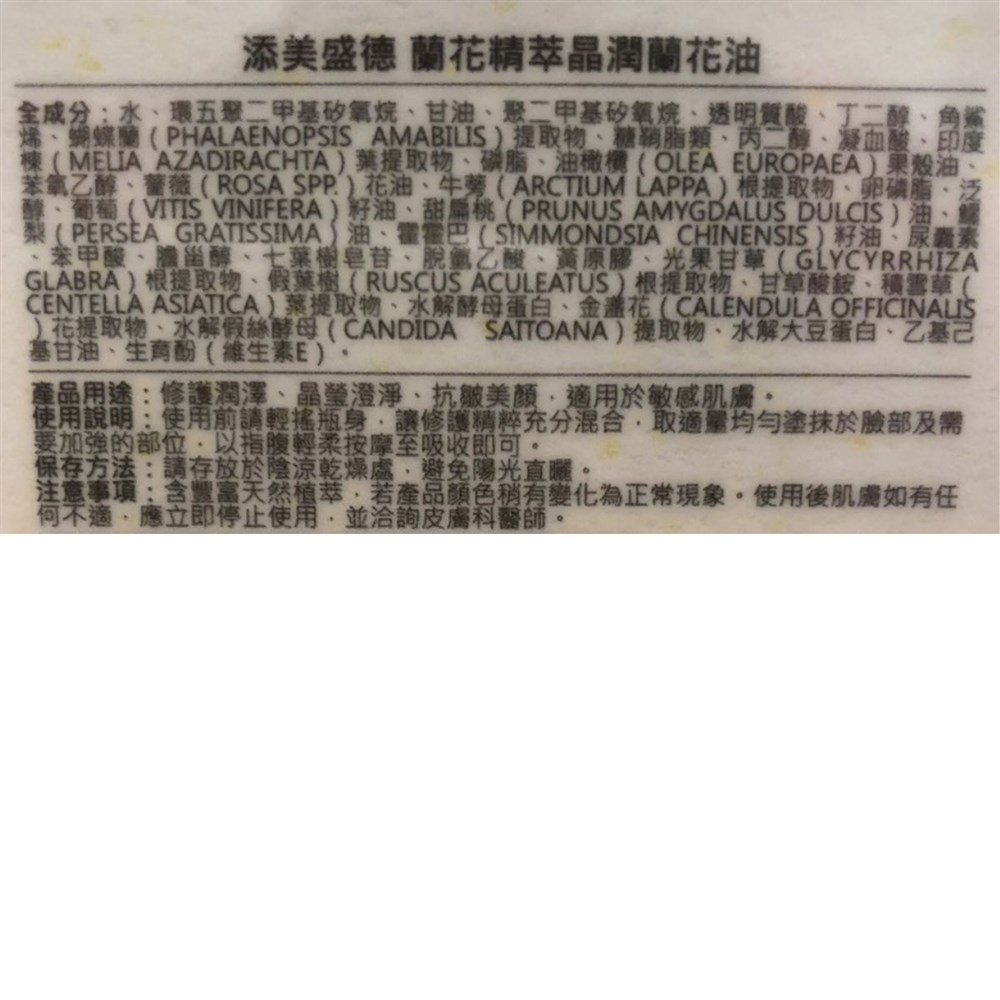 添美盛德 蘭花精萃晶潤蘭花油
全成分：水、環五聚二甲基矽氧烷、甘油、聚二甲基矽氧烷、透明質酸、丁二醇、角鯊
烯、蝴蝶蘭（PHALAENOPSIS AMABILIS）提取物、糖鞘脂類、丙二醇、凝血酸、印度
楝（MELIA AZADIRACHTA）葉提取物、磷脂、油橄欖（OLEA EUROPAEA）果殼油、
苯氧乙醇、薔薇（ROSA SPP.）花油、牛蒡（ARCTIUM LAPPA）根提取物、卵磷脂、泛
醇、葡萄（VITIS VINIFERA）籽油、甜扁桃（PRUNUS AMYGDALUS DULCIS）油、鱷
梨（PERSEA GRATISSIMA）油、霍霍巴（SIMMONDSIA CHINENSIS）籽油、尿囊素
、苯甲酸、膽甾醇、七葉樹皂苷、脫氫乙酸、黃原膠、光果甘草（GLYCYRRHIZA
GLABRA）根提取物、假葉樹（RUSCUS ACULEATUS）根提取物、甘草酸銨、積雪草（
CENTELLA ASIATICA）葉提取物、水解酵母蛋白、金盞花（CALENDULA OFFICINALIS
）花提取物、水解假絲酵母（CANDIDA SAITOANA）提取物、水解大豆蛋白、乙基己
基甘油、生育酚（維生素E）。
產品用途：修護潤澤、晶瑩澄淨、抗皺美顏，適用於敏感肌膚。
使用說明：使用前請輕搖瓶身，讓修護精粹充分混合，取適量均勻塗抹於臉部及需
要加強的部位，以指腹輕柔按摩至吸收即可。
保存方法：請存放於陰涼乾燥處，避免陽光直曬。
注意事項：含豐富天然植萃，若產品顏色稍有變化為正常現象。使用後肌膚如有任
何不適，應立即停止使用，並洽詢皮膚科醫師。